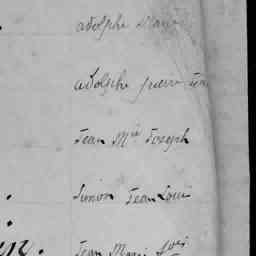 adolphe Marie
adolphe pierre Jean
Jean Mie Joseph
Simon Jean Louis
Jean Marie fois